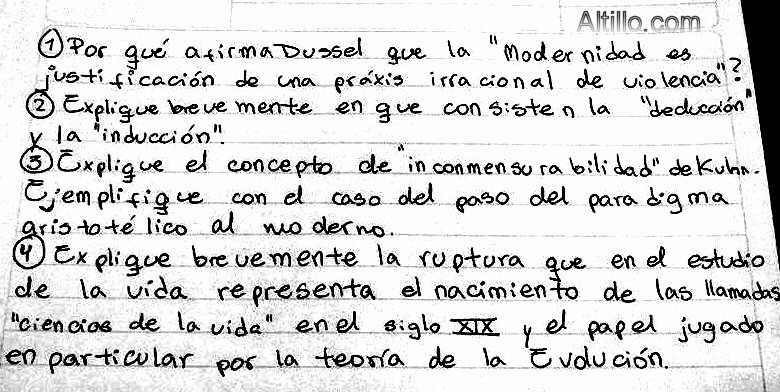 Altillo.com
① Por qué afirma Dussel que la "Modernidad es
justificación de una práxis irracional de violencia"?
② Explique brevemente en que consisten la "deducción"
y la "inducción".
③ Explique el concepto de "inconmensurabilidad" de Kuhn.
Ejemplifique con el caso del paso del paradigma
aristotélico al moderno.
④ Explique brevemente la ruptura que en el estudio
de la vida representa el nacimiento de las llamadas
"ciencias de la vida" en el siglo XIX y el papel jugado
en particular por la teoría de la Evolución.